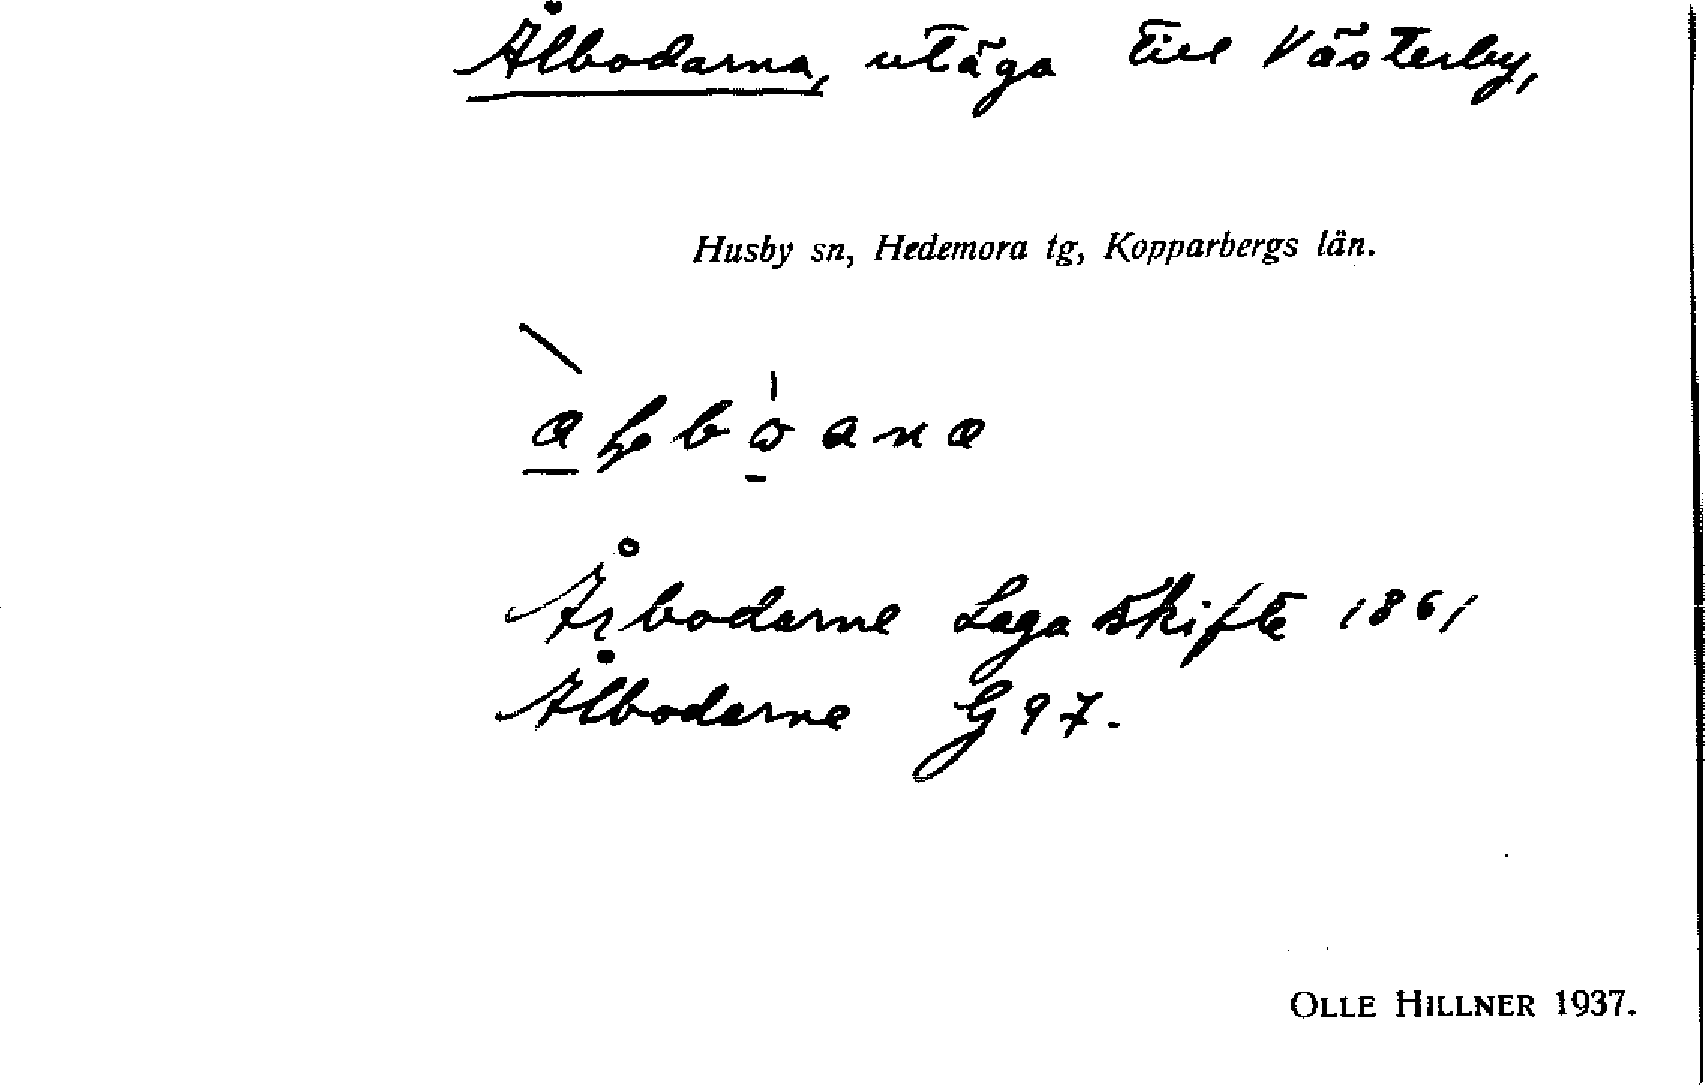 Ålbodarna, utäga till Västerby,
Husby sn, Hedemora tg, Kopparbergs län.
Årbodarne Laga Skifte 1861
Ålbodarne G 97.
OLLE HILLNER 1937.